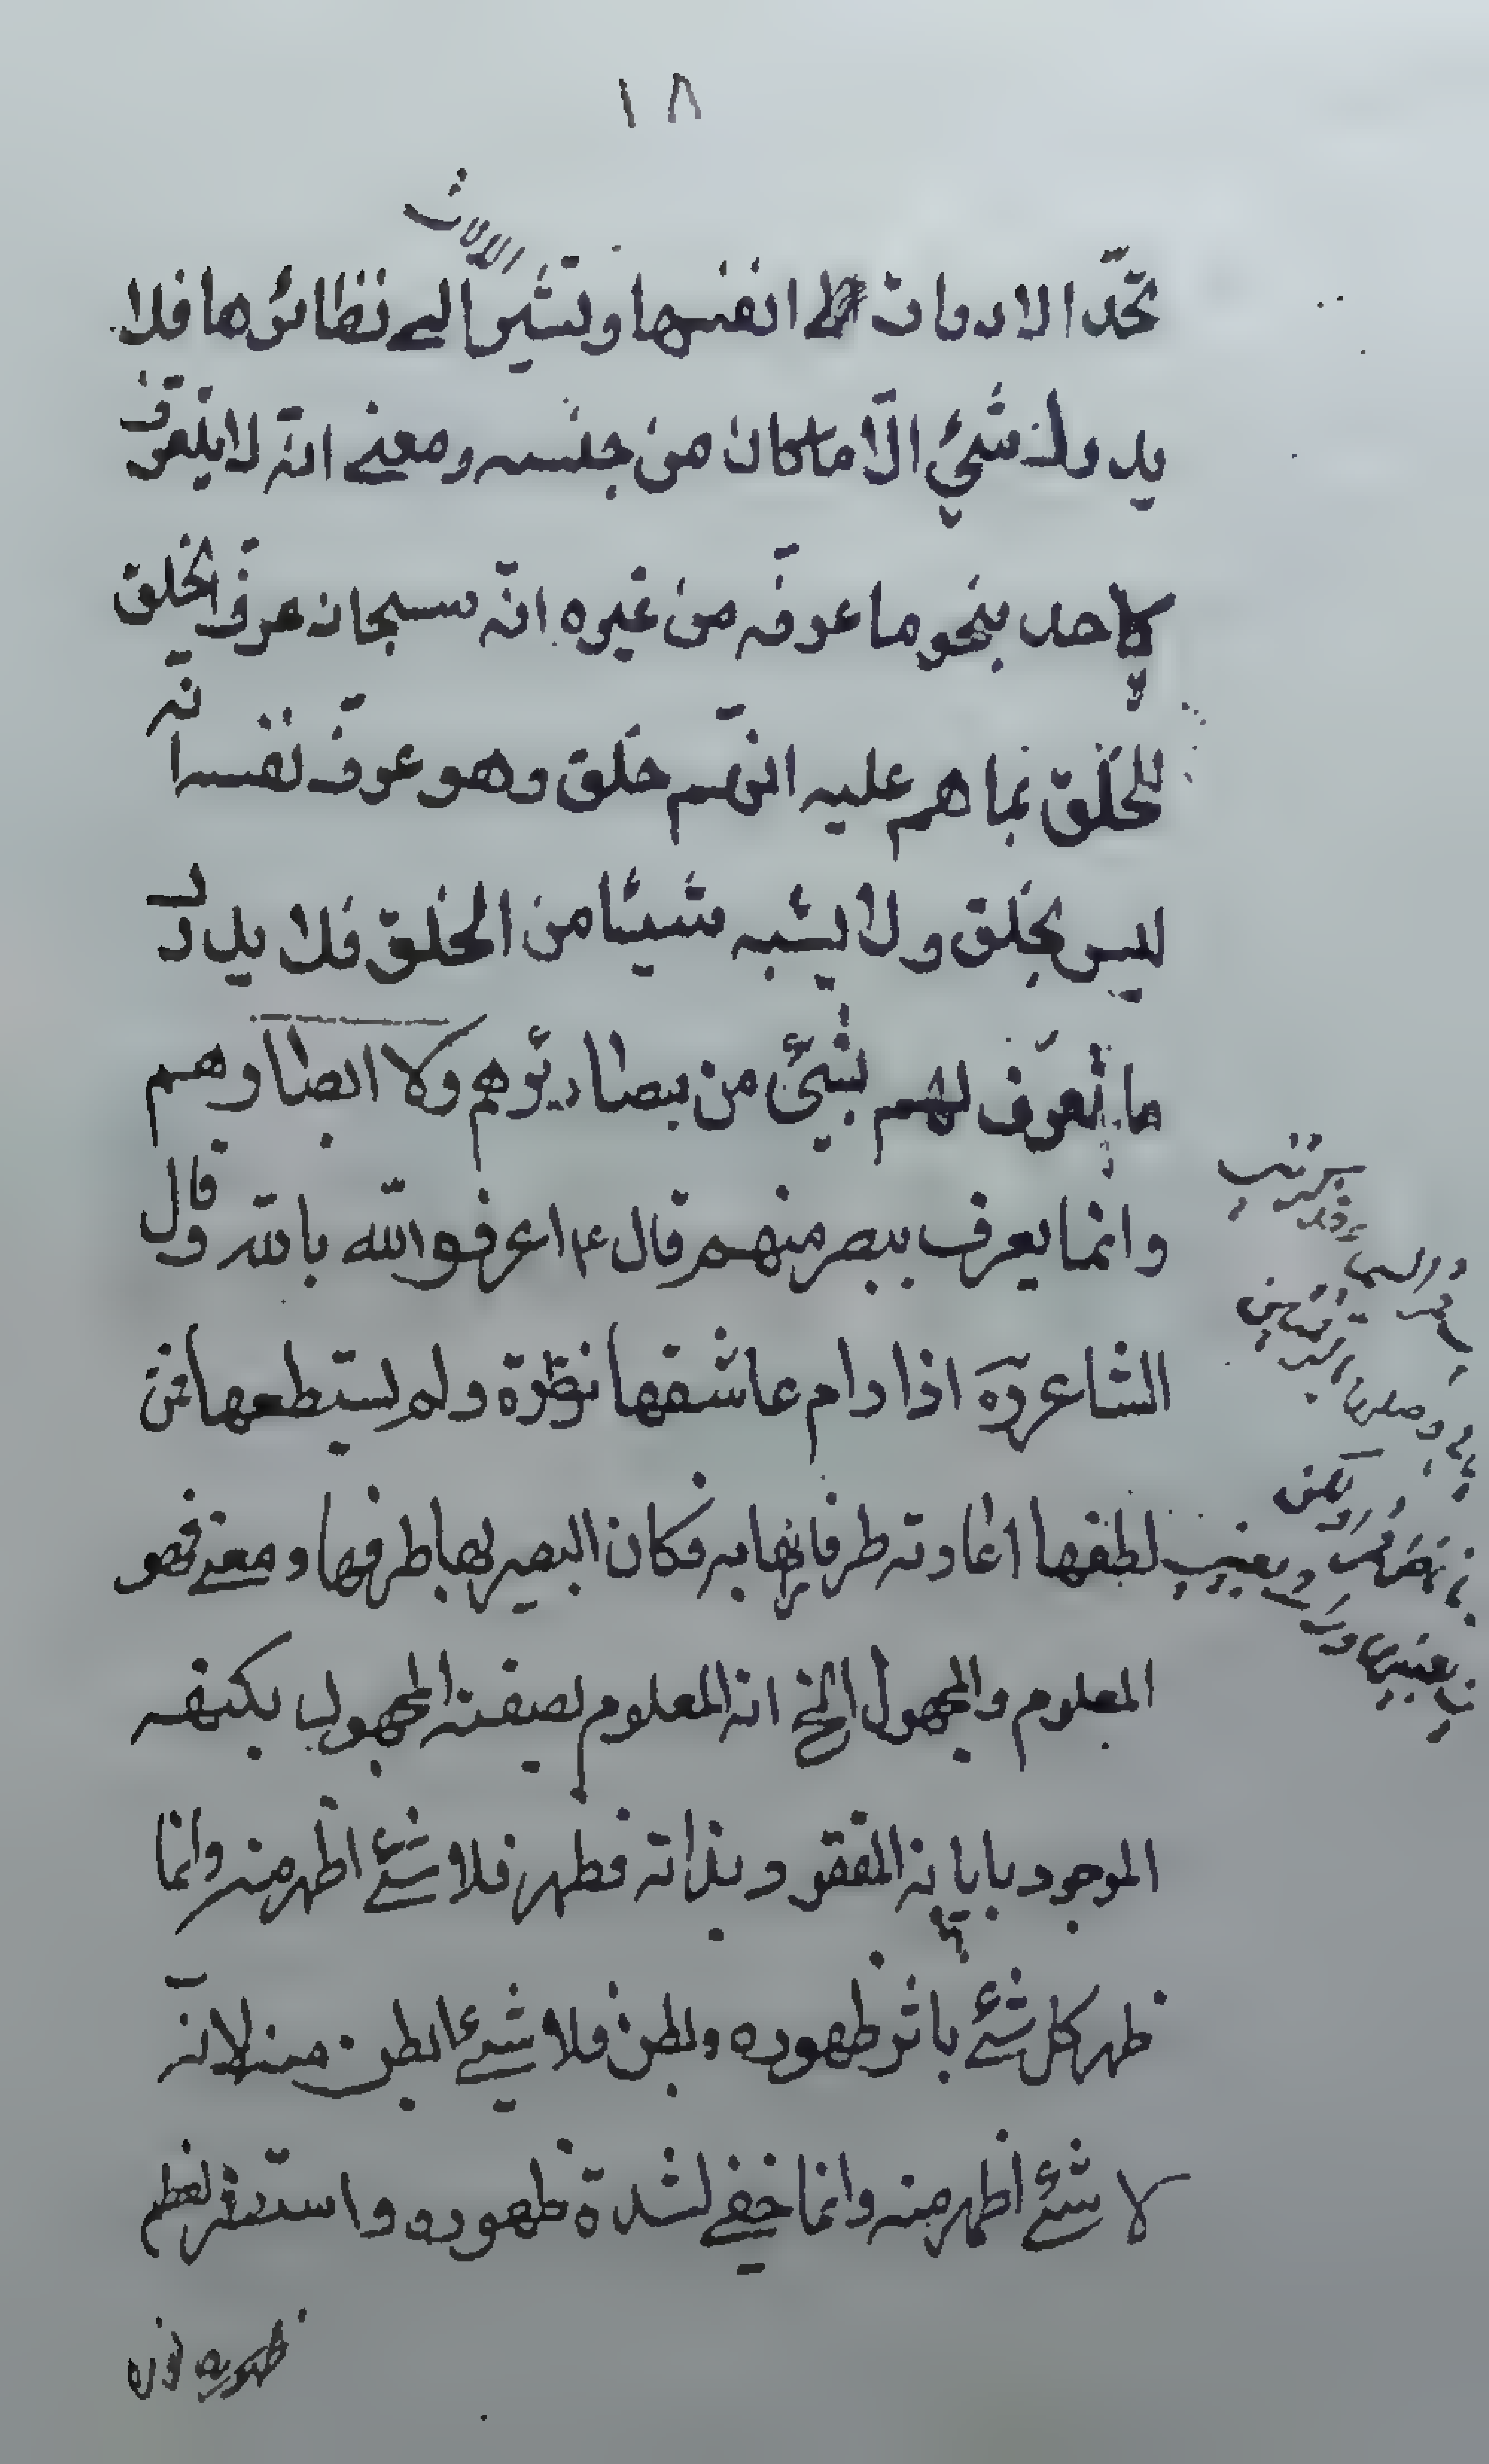 ١٨
الالات
تحدّ الادوات انفسها وتشير الى نظائرها فلا
يدرك شيئ الّا ما كان من جنسه ومعنى انّه لا يتعرّف
لاحد بنحو ما عرفه من غيره انّه سبحانه عرّف الخلق
للخلق بما هم عليه انّهم خلق وهو عرّف نفسه انّه
ليس بخلق ولا يشبه شيئا من الخلق فلا يدرك
ما تعرّف لهم بشيئ من بصائرهم ولا ابصارهم
وانما يعرف ببصر منهم قال ع اعرفوا الله بالله وقال
الشاعر ره اذا رام عاشقها نظرة ولم يستطعها فمن
لطفها اعارته طرفا رآها به فكان البصير بها طرفها ومعنى فهو
المعلوم والمجهول الخ انه المعلوم بصفته المجهول بكنهه
الموجود باياته المفقود بذاته فظهر فلا شئ اظهر منه وانما
ظهر كل شئ باثر ظهوره وبطن فلا شيئ ابطن منه لانّه
لا شئ اظهر منه وانما خفى لشدة ظهوره واستتر لعظم
ظهوره نوره